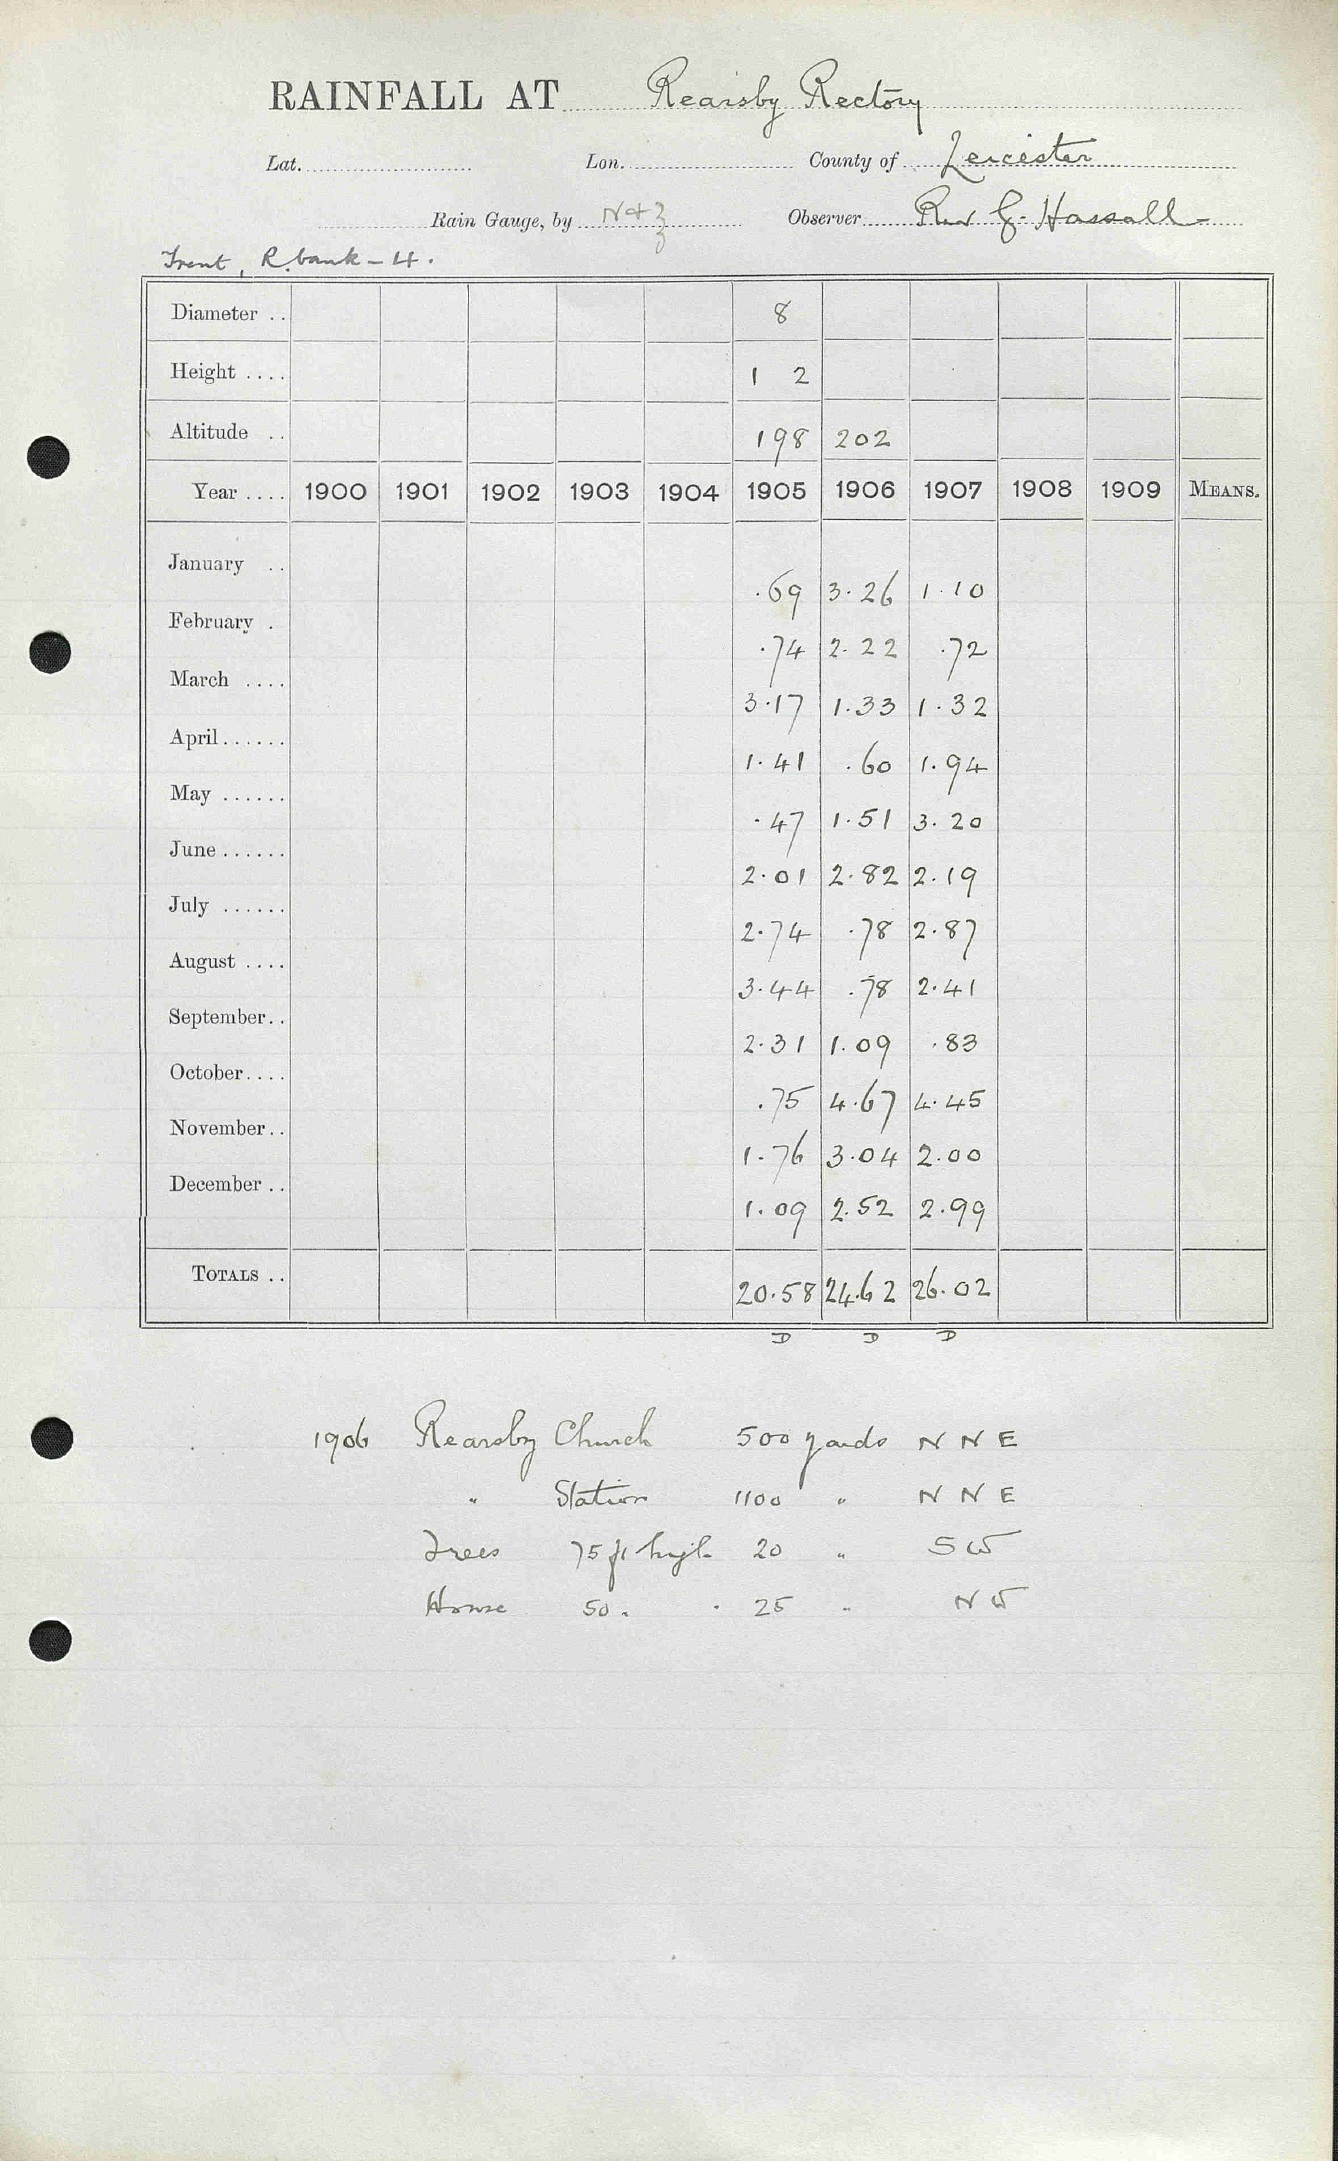 RAINFALL AT Rearsby Rectory
Lat. Lon. County of Leicester
Rain Gauge, by N & Z Observer Rev G. Hassall
Trent, R. bank - 4.
Diameter .. 8
Height .... 1 2
Altitude .. 198 202
Year .... 1900 1901 1902 1903 1904 1905 1906 1907 1908 1909 MEANS.
January .. .69 3.26 1.10
February . .74 2.22 .72
March .... 3.17 1.33 1.32
April...... 1.41 .60 1.94
May ...... .47 1.51 3.20
June...... 2.01 2.82 2.19
July ...... 2.74 .78 2.87
August .... 3.44 .78 2.41
September.. 2.31 1.09 .83
October.... .75 4.67 4.45
November.. 1.76 3.04 2.00
December .. 1.09 2.52 2.99
TOTALS .. 20.58 24.62 26.02
D D D
1906 Rearsby Church 500 yards N N E
" Station 1100 " N N E
Trees 75 ft high 20 " S W
House 50 " " 25 " N W